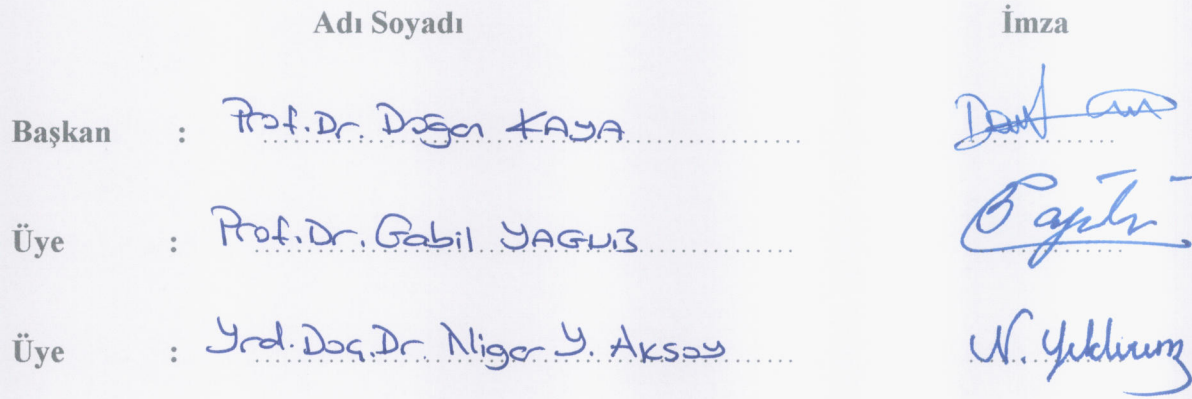 Adı Soyadı İmza
Başkan : Prof. Dr. Doğan KAYA
Üye : Prof. Dr. Gabil YAGUB
Üye : Yrd. Doç. Dr. Nigar Y. Aksoy N. Yıldırım